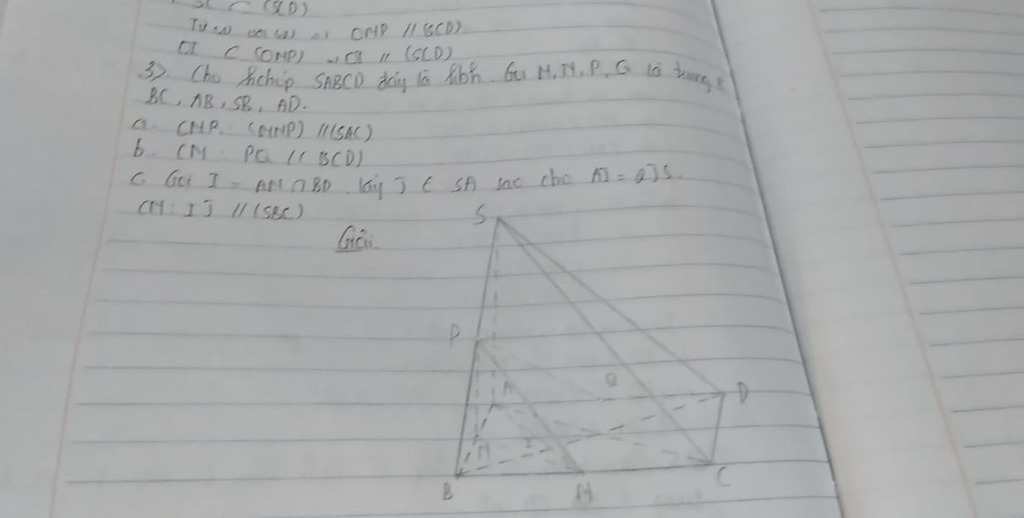 SC ⊂ (SCD)
Từ (1) và (2) => OMP // (SCD)
OI ⊂ (OMP) => OI // (SCD)
3). Cho hchóp SABCD đáy là hbh. Gọi M, N, P, Q là trung đ
BC, AB, SB, AD.
a. CMR. (MNP) // (SAC)
b. CM: PQ // (SCD)
c. Gọi I = AM ∩ BD. Lấy J ∈ SA sao cho AJ = 2JS.
CM: IJ // (SBC)
Giải.
S
P
A
Q
D
N
I
B
M
C